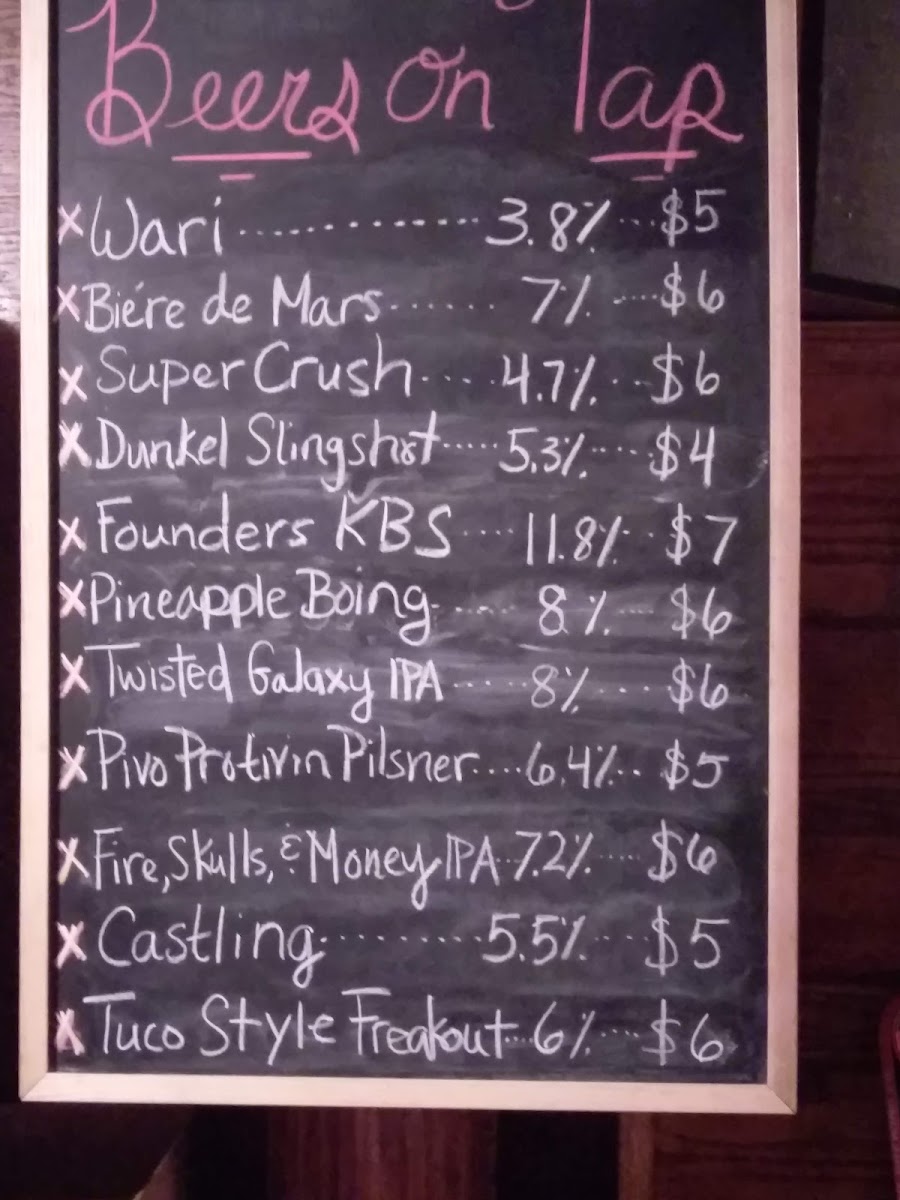 Beers On Tap
x Wari ............. 3.8% ... $5
x Biére de Mars ...... 7% .... $6
x Super Crush .... 4.7% ... $6
x Dunkel Slingshot ..... 5.3% .... $4
x Founders KBS .... 11.8% .. $7
x Pineapple Boing .... 8% ... $6
x Twisted Galaxy IPA .... 8% .... $6
x Pivo Protivin Pilsner .... 6.4% .. $5
x Fire, Skulls, & Money IPA .. 7.2% .... $6
x Castling ......... 5.5% ... $5
x Tuco Style Freakout ... 6% .... $6